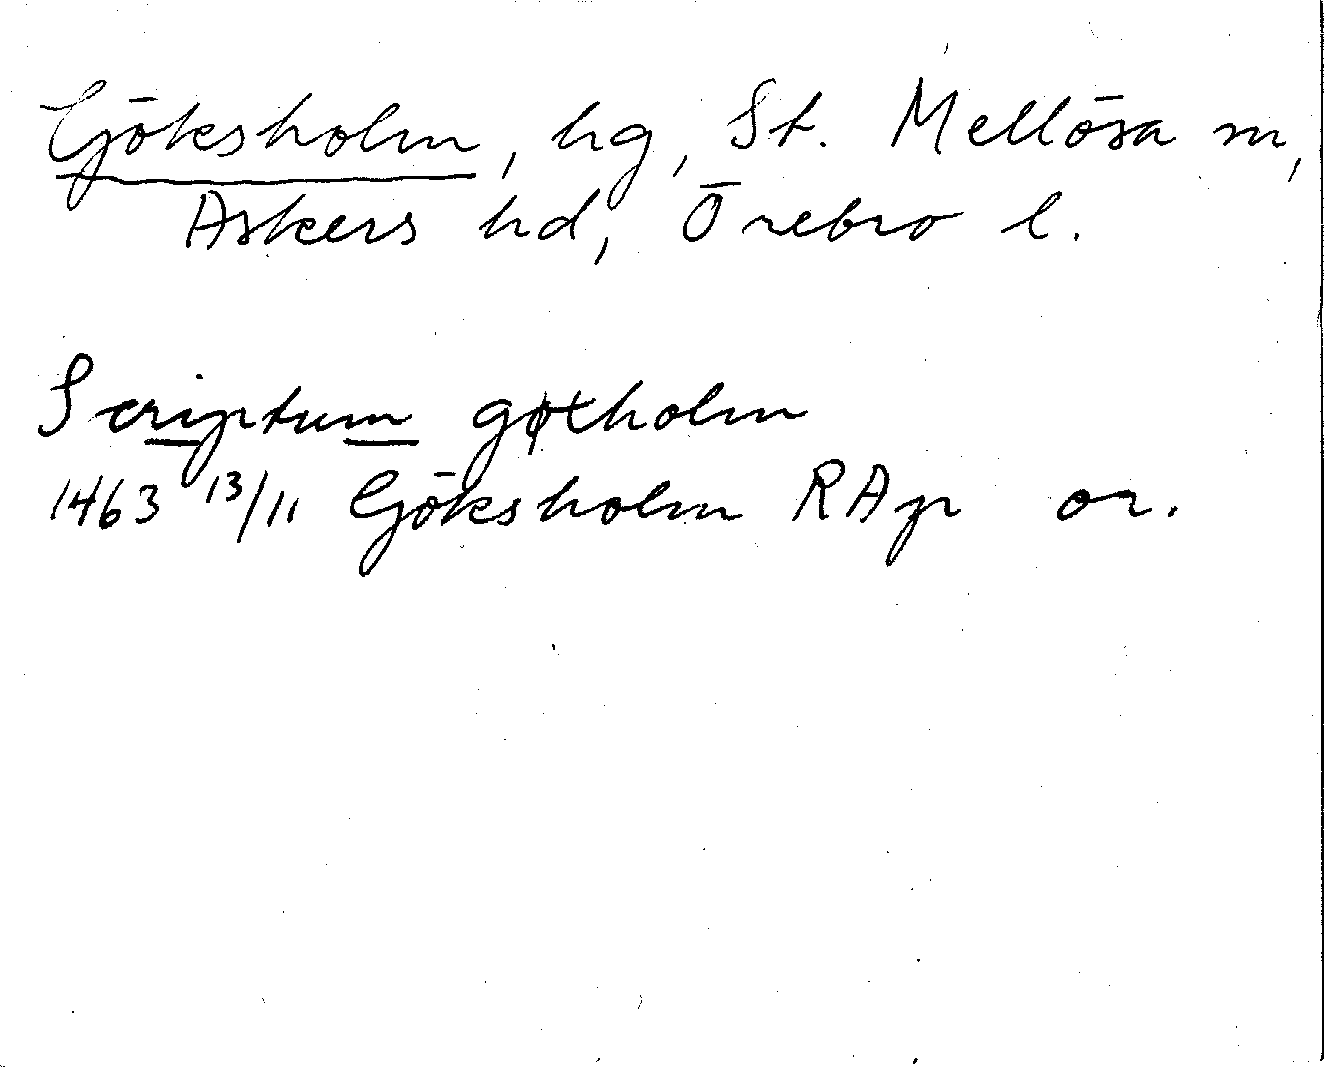 Göksholm, hg, St. Mellösa sn,
Askers hd, Örebro l.
Scriptum gøxholm
1463 13/11 Göksholm RAp or.